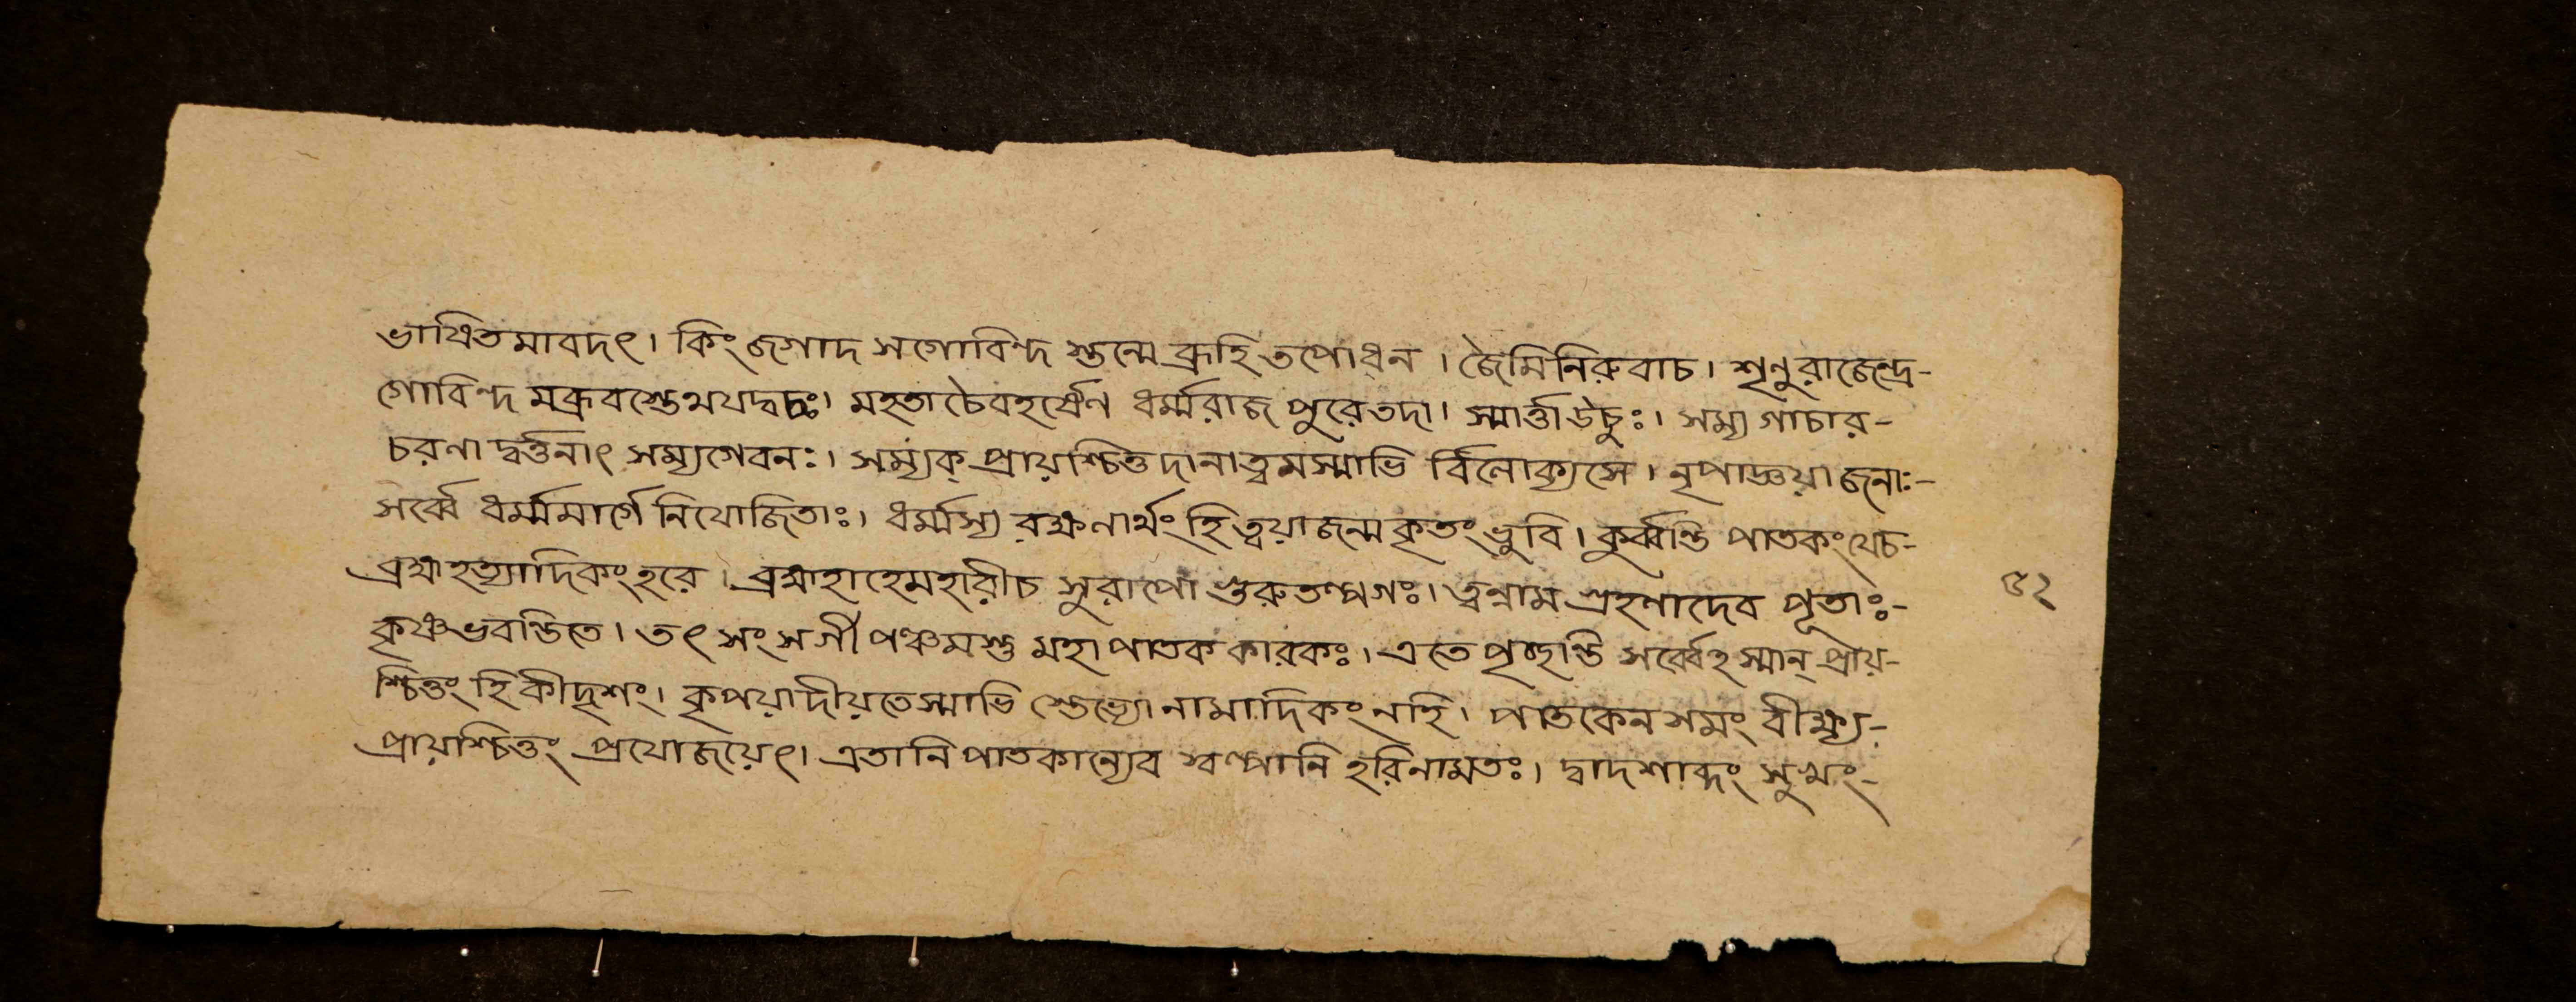 ভাষিতমাবদৎ। কিং জগাদ সগোবিন্দ স্তন্মে ব্রূহি তপোধন। জৈমিনিরুবাচ। শৃণুরাজেন্দ্র-
গোবিন্দ মব্রুবংস্তেঽথযদ্বচঃ। মহতাচৈবহর্ষেণ ধর্ম্মরাজ পুরেতদা। স্মার্ত্তাউচুঃ। সম্য গাচার-
চরণাদ্বর্ত্তনাৎ সম্যগেবনঃ। সম্যক্ প্রায়শ্চিত্তদানাত্ত্বমস্মাভি র্বিলোক্যসে। নৃপাজ্ঞয়া জনাঃ-
সর্ব্বে ধর্ম্মমার্গে নিযোজিতাঃ। ধর্ম্মস্য রক্ষণার্থংহিত্বয়াজন্মকৃতংভুবি। কুর্ব্বন্তি পাতকংযেচ-
ব্রহ্মহত্যাদিকংহরে। ব্রহ্মহাহেমহারীচ সুরাপো গুরুতল্পগঃ। ত্বন্নাম গ্রহণাদেব পূতাঃ-
কৃষ্ণভবন্তিতে। তৎ সংসর্গী পঞ্চমস্তু মহাপাতককারকঃ। এতে পৃচ্ছন্তি সর্ব্বেহস্মান্ প্রায়-
শ্চিত্তং হি কীদৃশং। কৃপয়াদীয়তেস্মাভি স্তেভ্যোনামাদিকংনহি। পাতকেনসমং বীক্ষ্য-
প্রায়শ্চিত্তং প্রযোজয়েৎ। এতানিপাতকান্যেব স্বল্পানি হরিনামতঃ। দ্বাদশাব্দং সুখং-